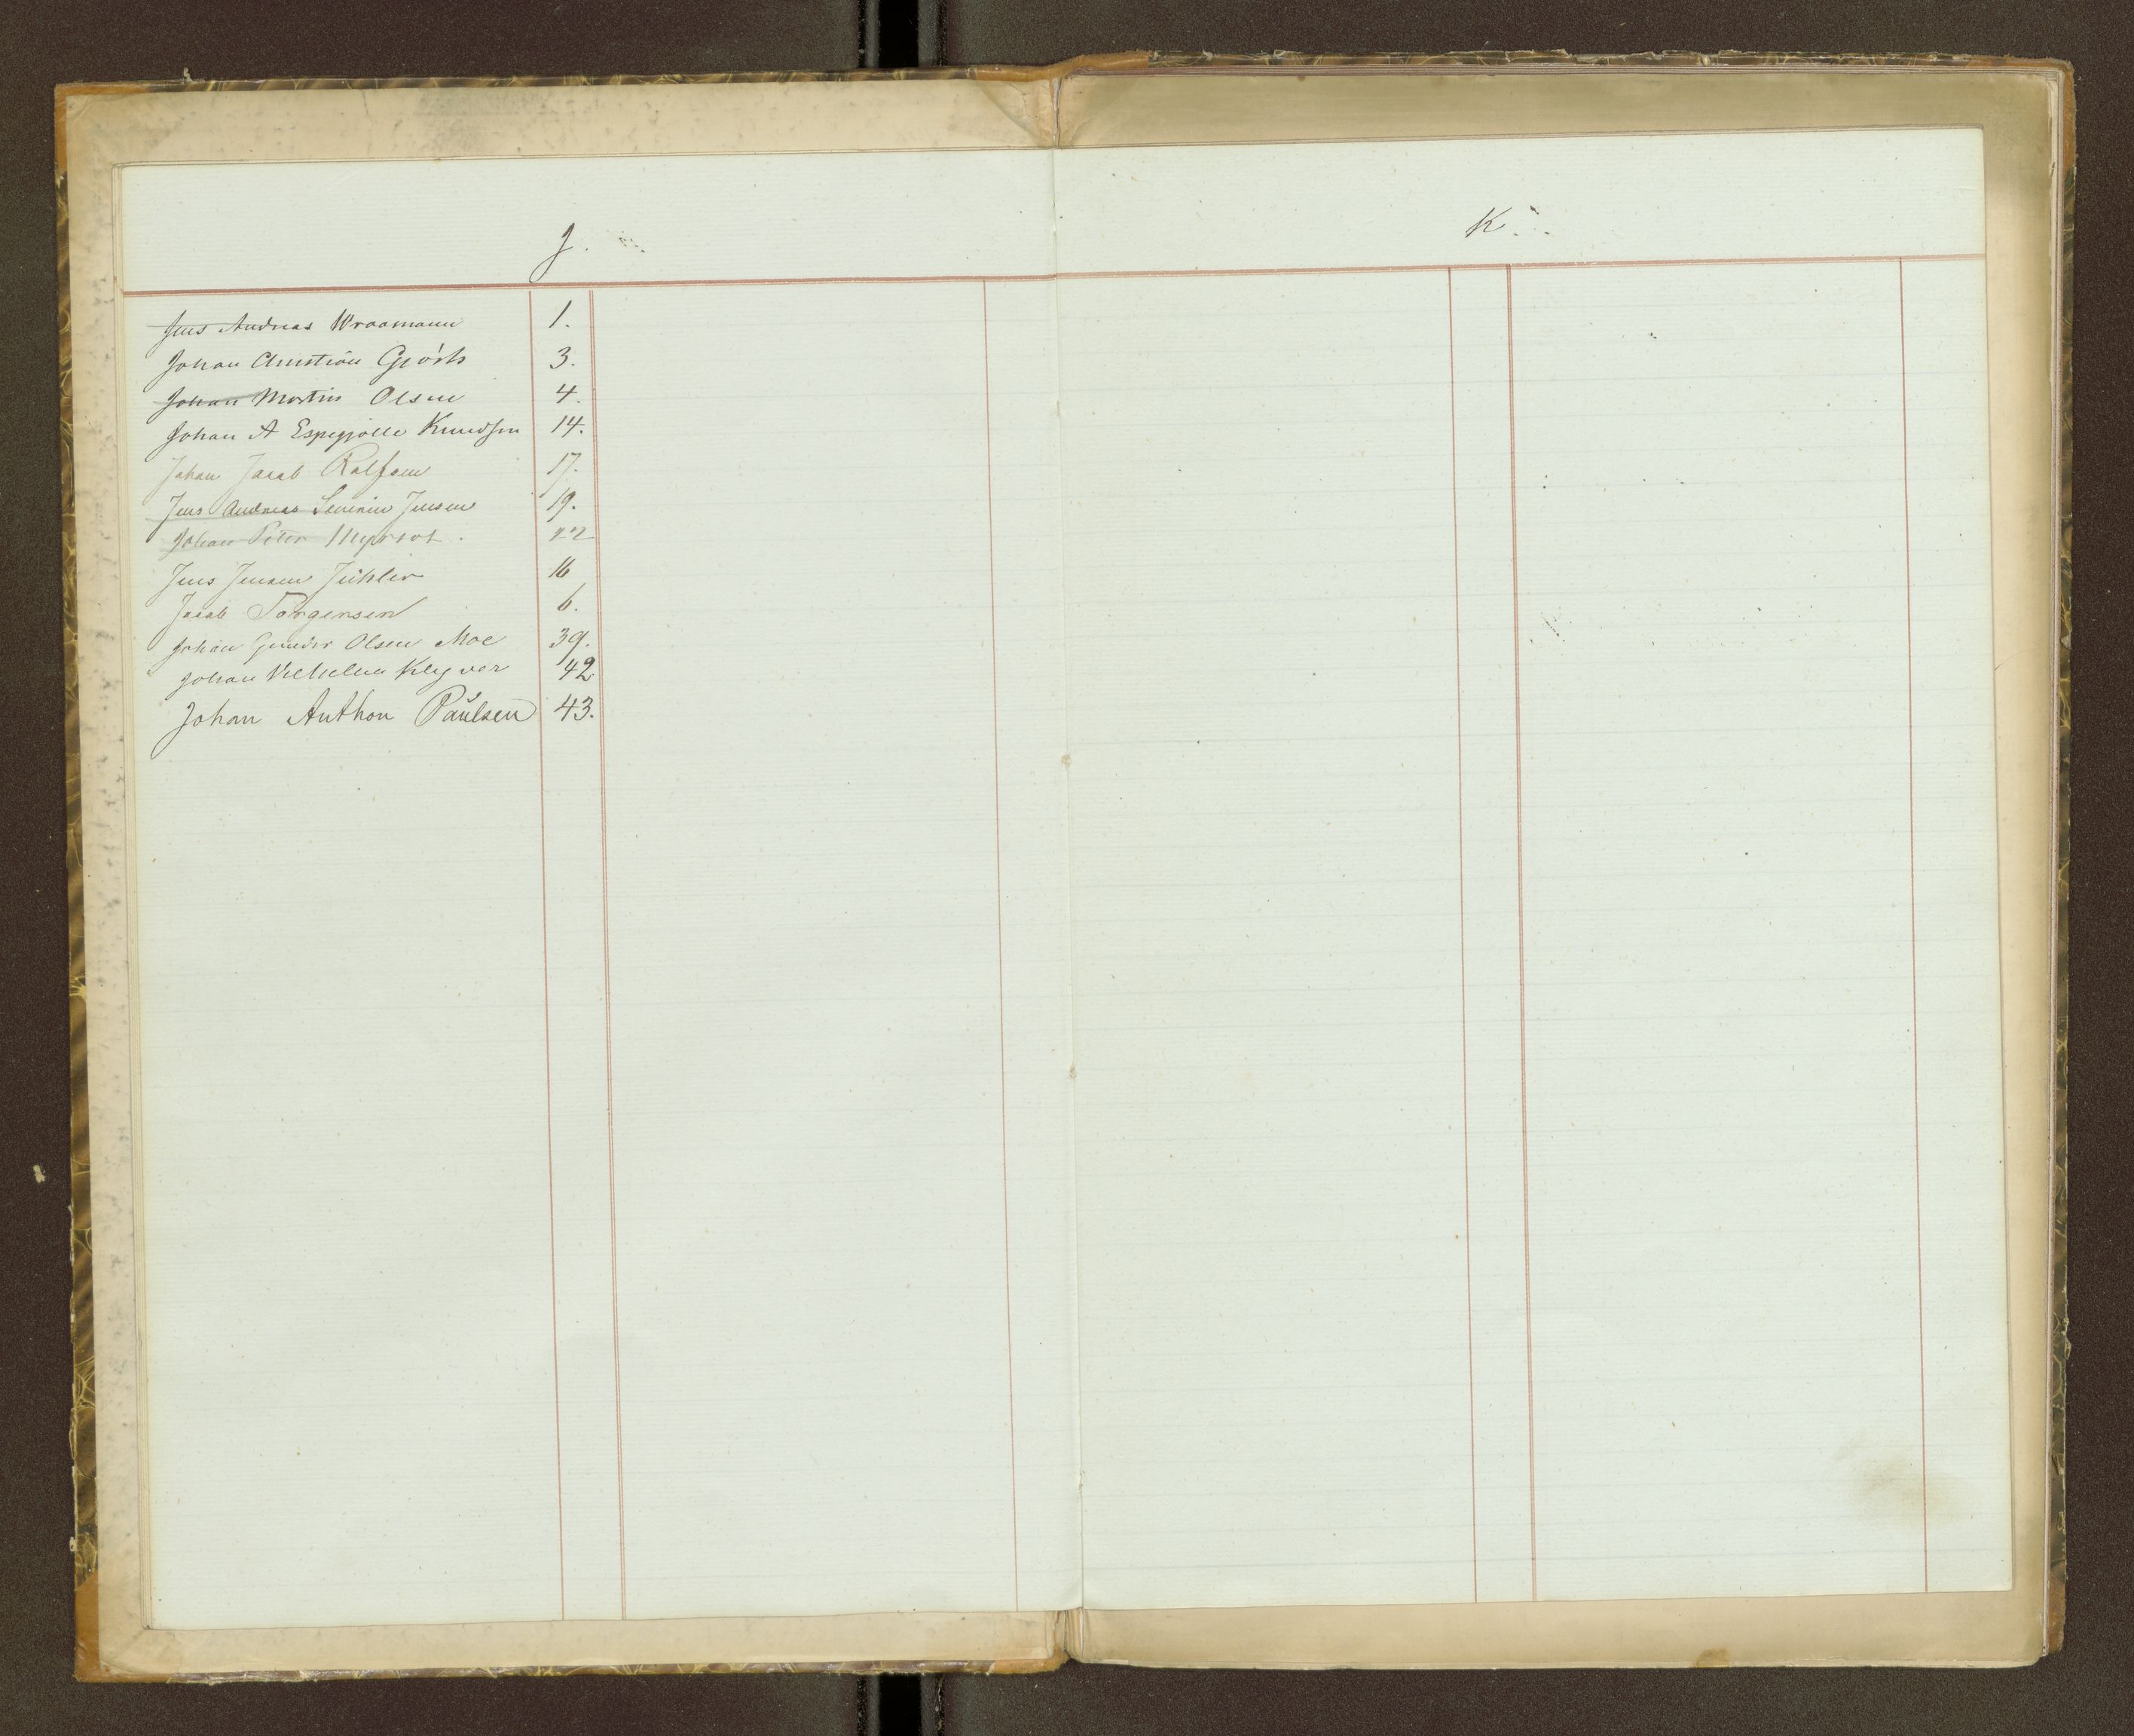 J.
Jens Andreas Wraamann 1.
Johan Christian Gjörts 3.
Johan Martin Olsen 4.
Johan A Espegjölle Knudsen 14.
Johan Jacob Rolfsen 17.
Jens Andreas Severin Jensen 19.
Johan Peter 22
Jens Jensen Jühler 16
Jacob Torgersen 6.
Johan Gunder Olsen Moe 39.
Johan Vilhelm Klyver 42.
Johan Anthon Paulsen 43.
K.